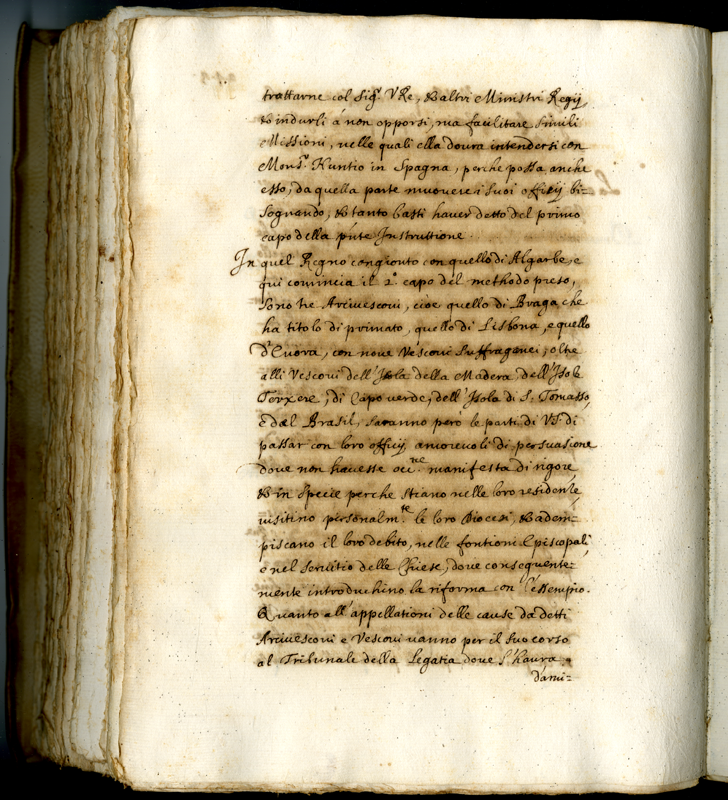 trattarne col Sig.r V Re, & altri Ministri Regij,
& indurli á non opporsi, ma facilitare simili
Missioni, nelle quali ella dovra intendersi con
Mons.r Nuntio in Spagna, perche possa anche
esso, da quella parte muovere i suoi officij bi=
sognando, & tanto basti haver detto del primo
capo della p'nte Instruttione.
In quel Regno congionto con quello di Algarbe, e
qui comincia il 2.o capo del methodo preso,
sono tre Arcivescovi, cioe quello di Braga che
ha titolo di primato, quello di Lisbona, e quello
d'Evora, con nove Vescovi Suffraganei, oltre
alli Vescovi dell'Isola della Madera dell'Isole
Terxere, di Capo verde, dell'Isola di S. Tomasso,
e del Brasil, saranno però le parti di VS. di
passar con loro officij amorevoli di persuasione
dove non havesse occ.ne manifesta di rigore
& in specie perche stiano nelle loro residenze,
visitino personalm.te le loro Diocesi, & adem=
piscano il loro debito, nelle fontioni Episcopali,
e nel servitio delle Chiese, dove conseguente=
mente introduchino la riforma con l'essempio.
Quanto all'appellationi delle cause da detti
Arcivescovi e Vescovi vanno per il suo corso
al Tribunale della Legatia dove s'haura
d'ami=